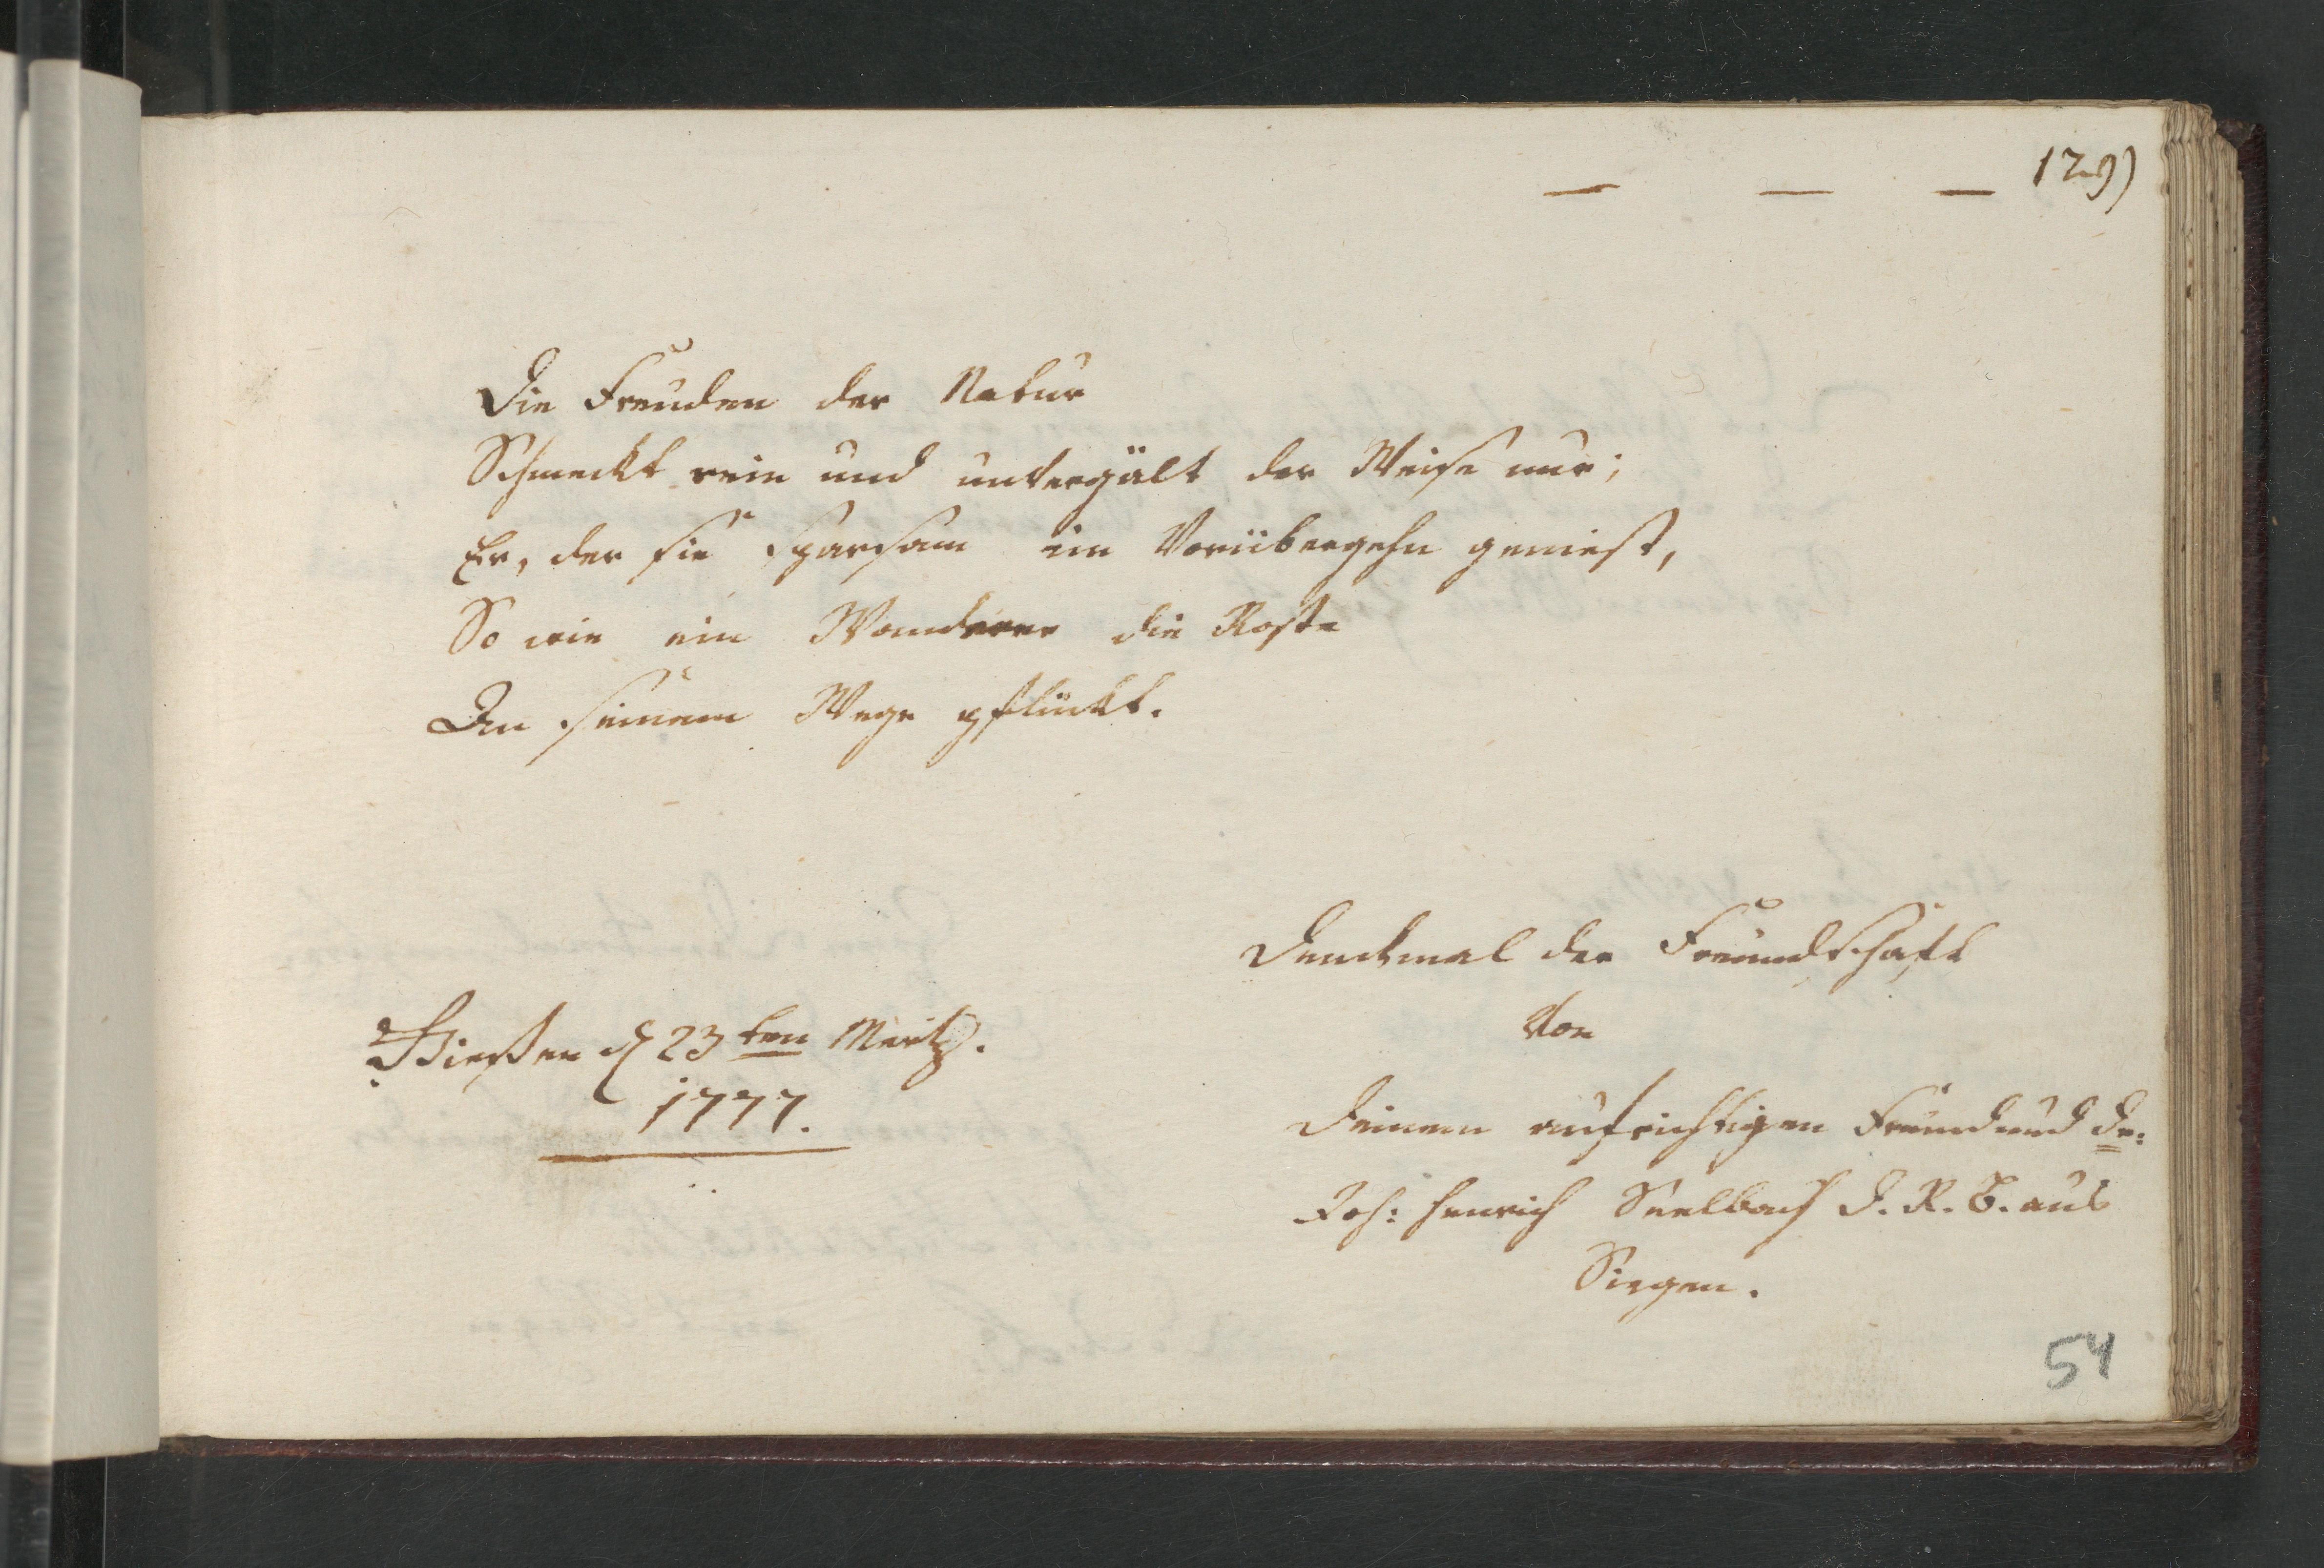 — — — 129)
Die Freuden der Natur
Schmeckt rein und unvergält der Weise nur;
Er, der sie sparsam im Vorübergehn geniest,
So wie ein Wanderer die Roße
An seinem Wege pflückt.
Denckmal der Freundschaft
von
Gießen d 23ten Mertz.
1777.
Deinem aufrichtigen Freund und Dr:
Joh: Henrich Seelbach d. R. B. aus
Siegen.
54